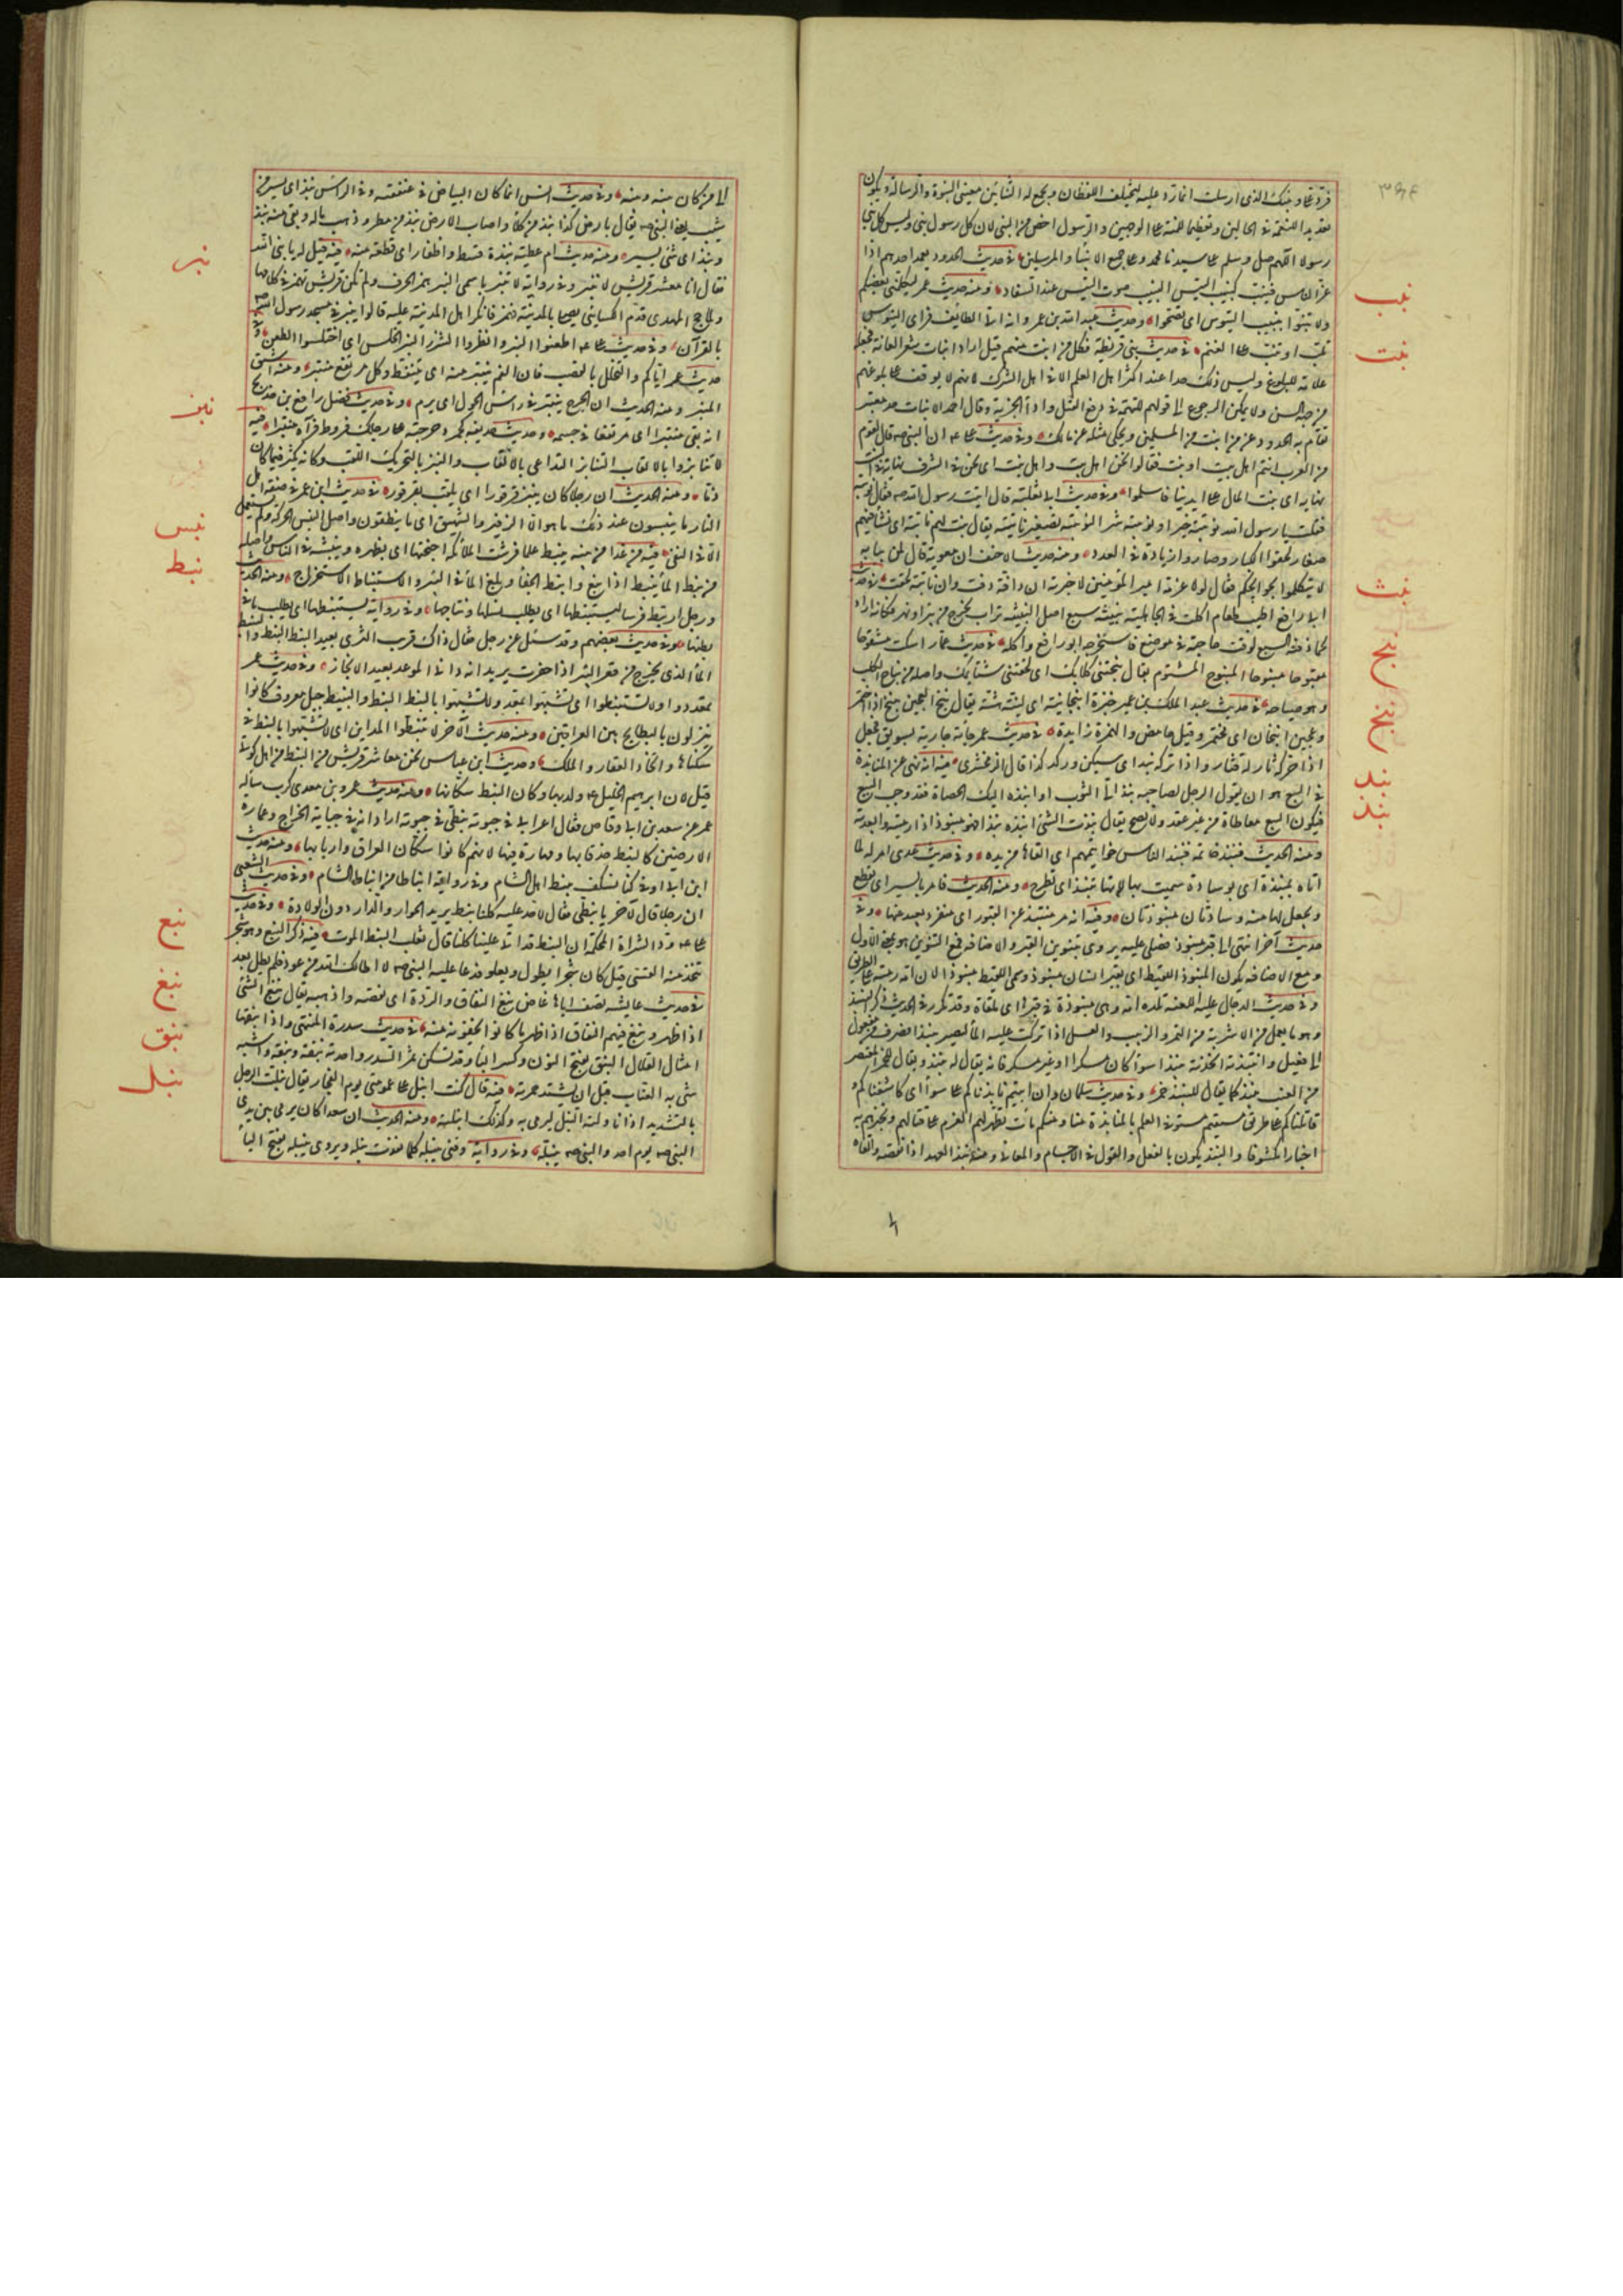 ٣٩٤
فرد عليَّ ونبيك الذي ارسلت انما رد عليه ليختلف اللفظان ويجمع له الثنائين معنى النبوة والرسالة ويكون
تعديدا للنعمة في الحالين وتعظيما للمنة على الوجهين والرسول اخص من النبي لان كل رسول نبي وليس كل نبي
رسولا اللهم صل وسلم على سيدنا محمد وعلى جميع الانبياء والمرسلين في حديث الحدود يعمد احدهم اذا
غزا الناس فينب كنبيب التيس النبيب صوت التيس عند السفاد ومنه حديث عمر ليكلمني بعضكم
ولا تنبوا نبيب التيوس اي تصيحوا وحديث عبد الله بن عمرو انه اتى الطائف فراى التيوس
تلب او تنب على الغنم في حديث بني قريظة فكل من انبت منهم قتل اراد انبات شعر العانة فجعله
علامة للبلوغ وليس ذلك حدا عند اكثر اهل العلم الا في اهل الشرك لانهم لا يوقف على بلوغهم
من جهة السن ولا يمكن الرجوع الى قولهم للتهمة في دفع القتل واداء الجزية وقال احمد الانبات حد معتبر
تقام به الحدود على من انبت من المسلمين ويحكى مثله عن مالك وفي حديث علي ان النبي قال لقوم
من العرب انتم اهل بيت او نبت فقالوا نحن اهل بيت واهل نبت اي نحن في الشرف نهاية وفي النبت
نهاية اي ينبت المال على ايدينا فاسلموا وفي حديث ابي ثعلبة قال اتيت رسول الله فقال نويبتة
فقلت يا رسول الله نويبتة خير او نويبتة شر النويبتة تصغير نابتة يقال نبتت لهم نابتة اي نشأ فيهم
صغار لحقوا الكبار وصاروا زيادة في العدد ومنه حديث الاحنف ان معوية قال لمن ببابه
لا يتكلموا بحوائجكم فقال لولا عزمة امير المؤمنين لاخبرته ان دافة دفت وان نابتة لحقت في حديث
ابي رافع اطيب طعام اكلت في الجاهلية نبيثة سبع اصل النبيثة تراب يخرج من بئر او نهر فكانه اراد
لحما دفنه السبع لوقت حاجته في موضع فاستخرجه ابو رافع واكله في حديث عمار اسكت مشقوحا
مقبوحا منبوحا المنبوح المشتوم يقال نبحتني كلابك اي لحقتني شتائمك واصله من نباح الكلب
وهو صياحه في حديث عبد الملك بن عمير خبزة انبخانية اي لينة هشة يقال نبخ العجين ينبخ اذا اختمر
وعجين انبخان اي مختمر وقيل حامض والهمزة زايدة في حديث عمر جاءته جارية بسويق فجعل
اذا حركته ثار له قشار واذا تركته نبد اي سكن وركد كذا قال الزمخشري فيه انه نهى عن المنابذة
في البيع هو ان يقول الرجل لصاحبه انبذ الي الثوب او انبذه اليك الحصاة فقد وجب البيع
فيكون البيع معاطاة من غير عقد ولا يصح يقال نبذت الشئ انبذه نبذا فهو منبوذ اذا رميته وابعدته
ومنه الحديث فنبذ خاتمه فنبذ الناس خواتيمهم اي القاها من يده وفي حديث عدي امر له لما
اتاه بمنبذة اي بوسادة سميت بها لانها تنبذ اي تطرح ومنه الحديث فامر بالستر اي يقطع
ويجعل لها منه وسادتان منبوذتان وفيه انه مر بقبر منتبذ عن القبور اي منفرد بعيد عنها وفي
حديث آخر انتهى الى قبر منبوذ فصلى عليه يروى بتنوين القبر والاضافة فمع التنوين هو بمعنى الاول
ومع الاضافة يكون المنبوذ اللقيط اي بقبر انسان منبوذ وسمي اللقيط منبوذا لان امه رمته على الطريق
وفي حديث الدجال عليه اللعنة تلده امه وهي منبوذة في قبرها اي ملقاة وقد تكرر في الحديث ذكر النبيذ
وهو ما يعمل من الاشربة من التمر والزبيب والعسل اذا تركت عليه الماء ليصير نبيذا فصرف من مفعول
الى فعيل وانتبذته اتخذته نبيذا سواء كان مسكرا او غير مسكر فانه يقال له نبيذ ويقال للخمر المعتصر
من العنب نبيذ كما يقال للنبيذ خمر وفي حديث سلمان وان ابيتم نابذناكم على سواء اي كاشفناكم و
قاتلناكم على طريق مستقيم مستو في العلم بالمنابذة منا ومنكم بان تظهر لهم العزم على قتالهم وتخبرهم به
اخبارا مكشوفا والنبذ يكون بالفعل والقول في الاجسام والمعاني ومنه نبذ العهد اذا نقضه والقاه
نبب
نبت
نبث
نبج
نبخ
نبد
نبذ
الى من كان منه ومنه وفي حديث انس انما كان البياض في عنفقته وفي الراس نبذ اي يسير من
شيب يعني النبي يقال بارض كذا نبذ من كلأ واصاب الارض نبذ من مطر وذهب ماله وبقي منه نبذ
ونبذة اي شئ يسير ومنه حديث ام عطية نبذة قسط واظفار اي قطعة منه فيه قيل له يا نبئ الله
فقال انا معشر قريش لا ننبر وفي رواية لا تنبر باسمي النبر همز الحرف ولم تكن قريش تهمز في كلامها
ولما حج المهدي قدم الكسائي يصلي بالمدينة فهمز فانكر اهل المدينة عليه قالوا ينبر في مسجد رسول الله
بالقرآن وفي حديث علي اطعنوا النبر وانظروا الشزر النبر الخلس اي اختلسوا الطعن وفي
حديث عمر اياكم والتخلل بالقصب فان الفم ينتبر منه اي يتنفط وكل مرتفع منتبر ومنه اشتق
المنبر ومنه الحديث ان الجرح ينتبر في راس الحول اي يرم وفي حديث فضل رافع بن خديج
انه بقي منتبرا اي مرتفعا في جسمه وحديث حذيفة كجمر دحرجته على رجلك فنفط فتراه منتبرا فيه
لا تنابزوا بالالقاب التنابز التداعي بالالقاب والنبز بالتحريك اللقب وكانه يكثر فيما كان
ذما ومنه الحديث ان رجلا كان ينبز قرقورا اي يلقب بقرقور في حديث ابن عمر في صفة اهل
النار ما ينبسون عند ذلك ما هو الا الزفير والشهيق اي ما ينطقون واصل النبس الحركة ولم يستعمل
الا في النفي فيه من غدا من بيته ينبط علما فرشت الملائكة اجنحتها اي يظهره ويفشيه في الناس واصله
من نبط الماء ينبط اذا نبع وانبط الحفار بلغ الماء في البئر والاستنباط الاستخراج ومنه الحديث
ورجل ارتبط فرسا ليستنبطها اي يطلب نسلها ونتاجها وفي رواية يستبطنها اي يطلب ما في
بطنها وفي حديث بعضهم وقد سئل عن رجل فقال ذاك قريب الثرى بعيد النبط النبط والنبيط
الماء الذي يخرج من قعر البئر اذا حفرت يريد انه داني الموعد بعيد الانجاز وفي حديث عمر
تمعددوا ولا تستنبطوا اي تشبهوا بمعد ولا تشبهوا بالنبط النبط والنبيط جيل معروف كانوا
ينزلون بالبطايح بين العراقين ومنه حديث الآخر لا تنبطوا المداين اي لا تشبهوا بالنبط في
سكناها واتخاذ العقار والملك وحديث ابن عباس نحن معاشر قريش من النبط من اهل كوثى
قيل لان ابرهيم الخليل ولد بها وكان النبط سكانها ومنه حديث عمرو بن معدي كرب سأله
عمر عن سعد بن ابي وقاص فقال اعرابي في حبوته نبطي في جبوته اراد انه في جباية الخراج وعمارة
الارضين كالنبط حذقا بها ومهارة فيها لانهم كانوا سكان العراق واربابها ومنه حديث
ابن ابي اوفى كنا نسلف نبيط اهل الشام وفي رواية انباطا من انباط الشام وفي حديث الشعبي
ان رجلا قال لآخر يا نبطي فقال لا حد عليه كلنا نبط يريد الجوار والدار دون الولادة وفي حديث
علي ود الشراة المحكمة ان النبط قد اتى علينا كلنا قال ثعلب النبط الموت فيه ذكر النبع وهو شجر
تتخذ منه القسي قيل كان شجرا يطول ويعلو فدعا عليه النبي لا اطالك الله من عود فلم يطل بعد
في حديث عايشة تصف اباها غاض نبغ النفاق والردة اي نقصه واذهبه يقال نبغ الشئ
اذا ظهر ونبغ فيهم النفاق اذا ظهر ما كانوا يخفونه منه في حديث سدرة المنتهى واذا نبقها
امثال القلال النبق بفتح النون وكسر الباء وقد تسكن ثمر السدر واحدته نبقة ونبقة واشبه
شئ به العناب قبل ان يشتد حمرته فيه قال كنت انبل على عمومتي يوم الفجار يقال نبلت الرجل
بالتشديد اذا ناولته النبل ليرمي به وكذلك انبلته ومنه الحديث ان سعدا كان يرمي بين يدي
النبي يوم احد والنبي ينبله وفي رواية وفتى ينبله كلما نفدت نبله ويروى ينبله بفتح الياء
نبر
نبز
نبس
نبط
نبع
نبغ
نبق
نبل